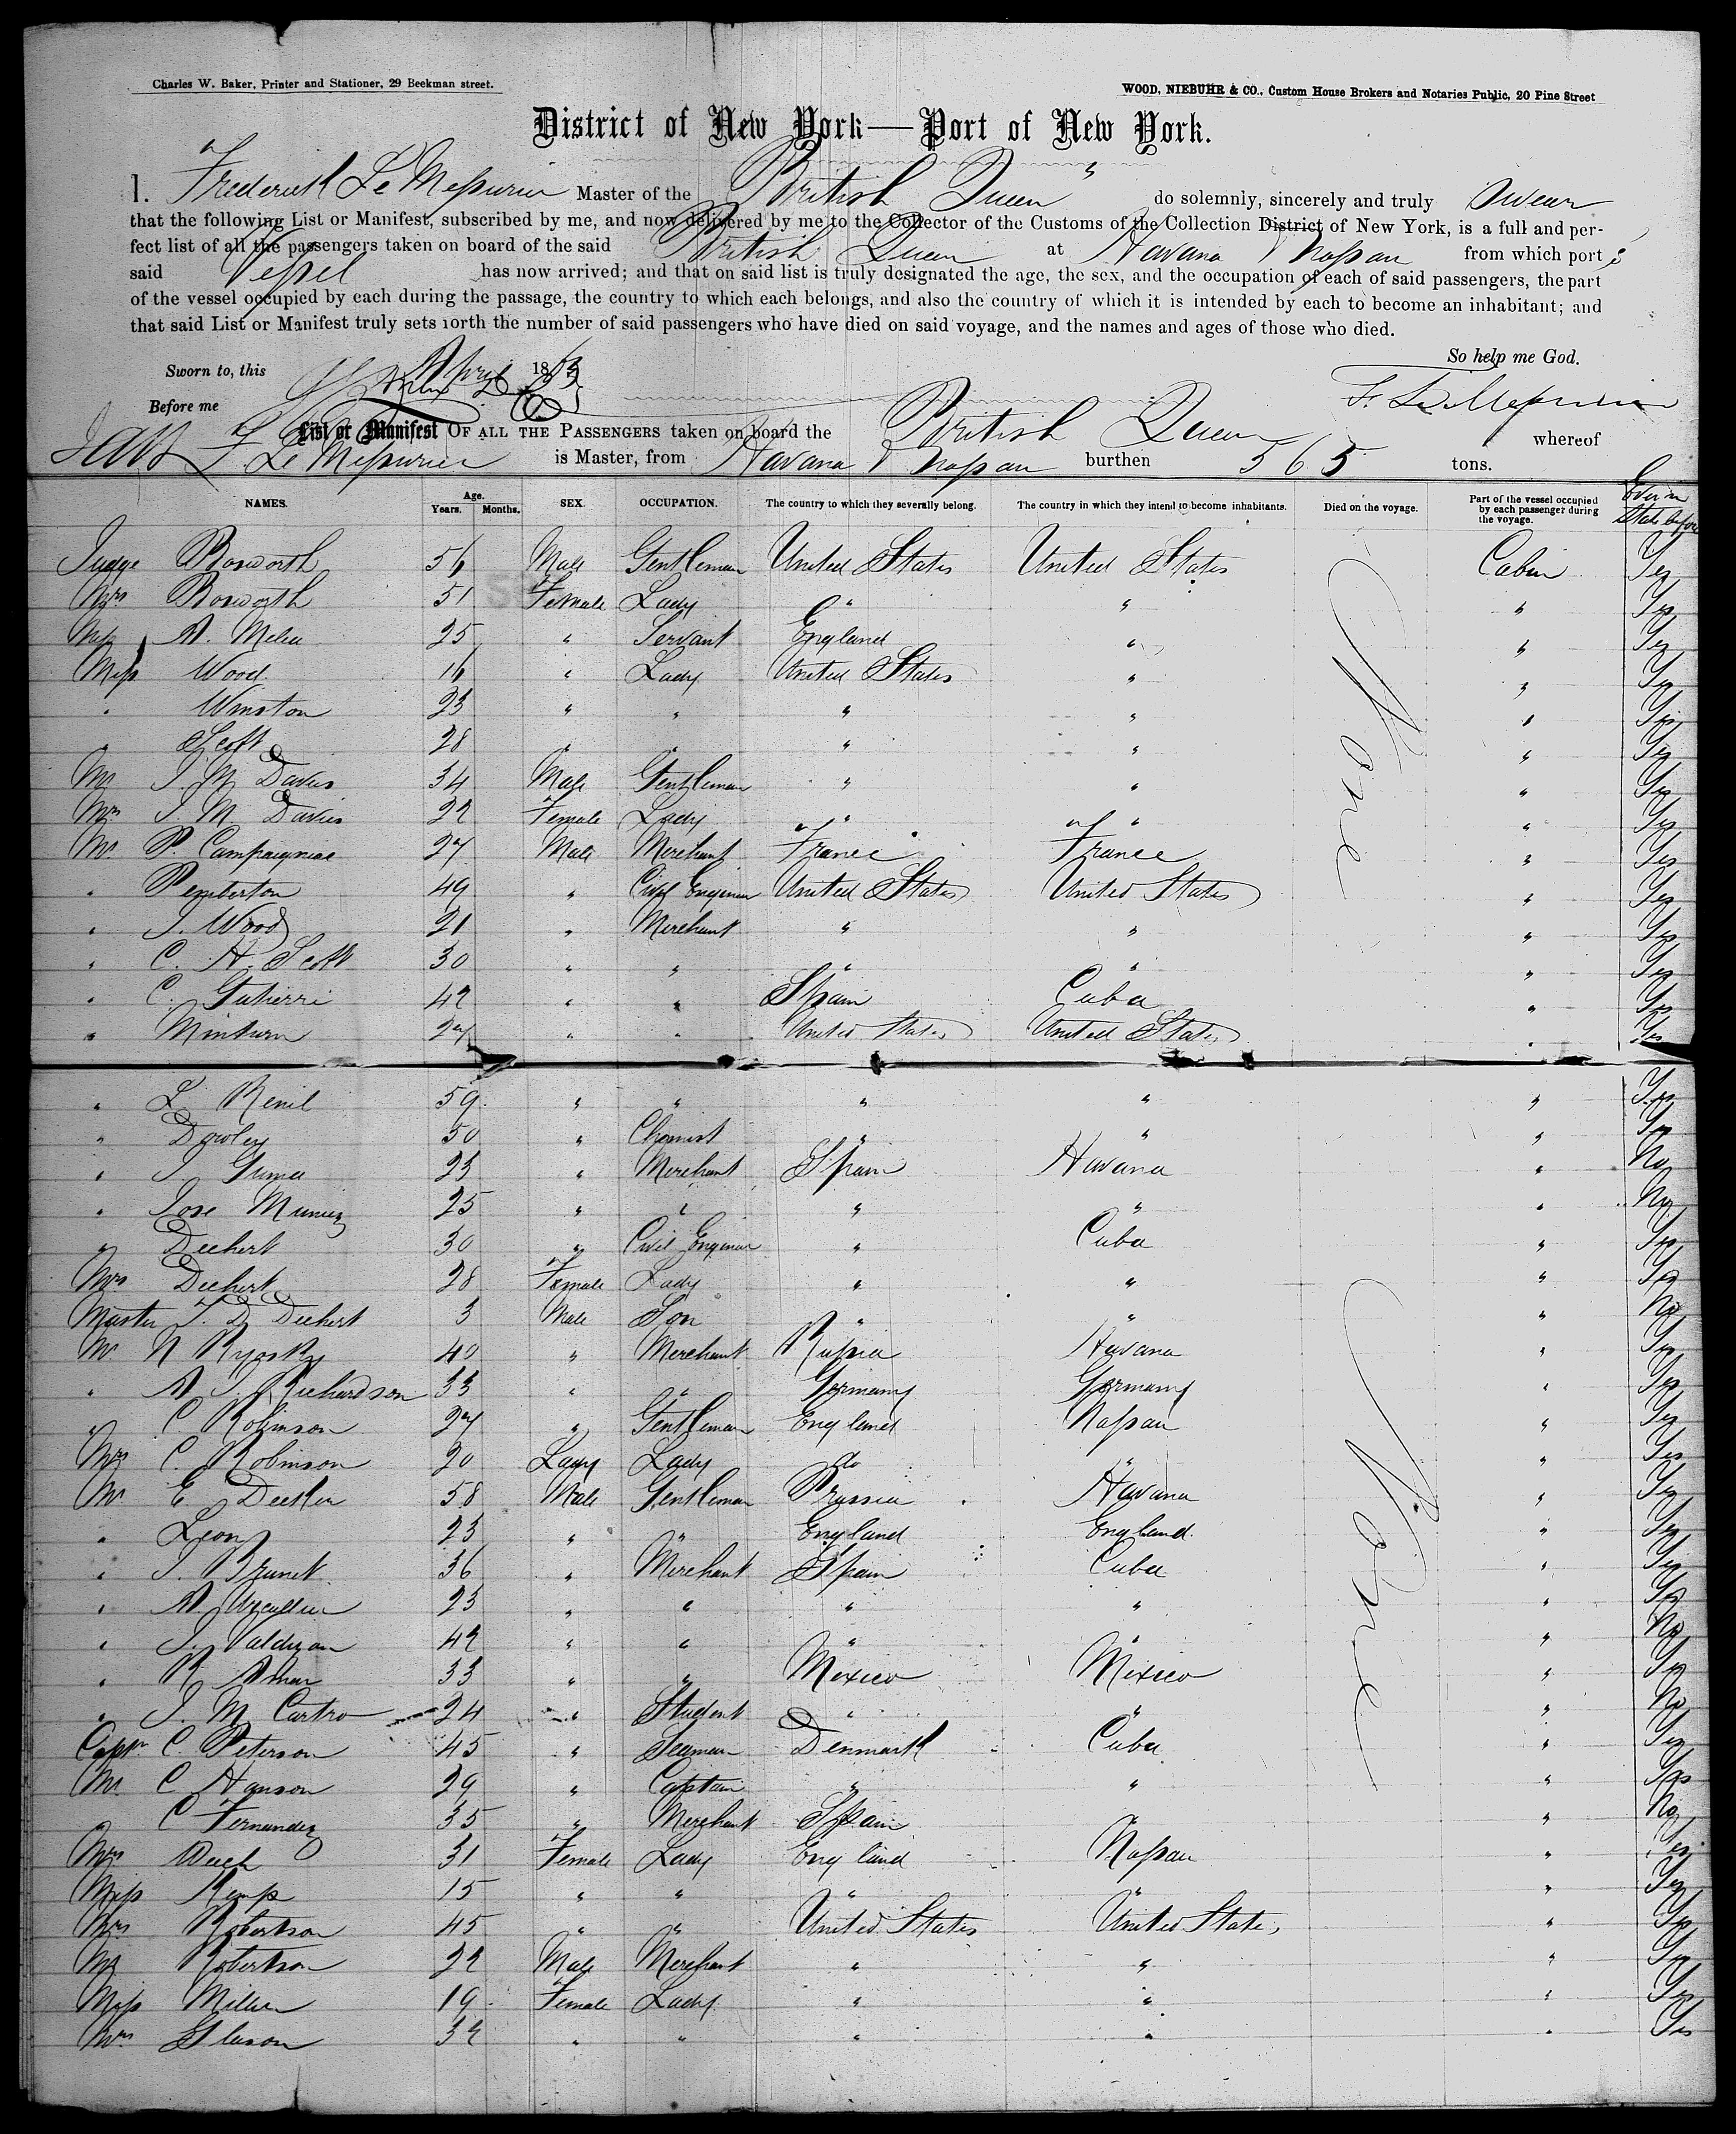 Charles W. Baker, Printer and Stationer, 29 Beekman street.
WOOD, NIEBUHR & CO., Custom House Brokers and Notaries Public, 20 Pine Street
District of New York—Port of New York.
I. Frederick Le Mesurier Master of the British Queen do solemnly, sincerely and truly swear
that the following List or Manifest, subscribed by me, and now delivered by me to the Collector of the Customs of the Collection District of New York, is a full and per-
fect list of all the passengers taken on board of the said British Queen at Havana & Nassau from which port
said Vessel has now arrived; and that on said list is truly designated the age, the sex, and the occupation of each of said passengers, the part
of the vessel occupied by each during the passage, the country to which each belongs, and also the country of which it is intended by each to become an inhabitant; and
that said List or Manifest truly sets forth the number of said passengers who have died on said voyage, and the names and ages of those who died.
So help me God.
Sworn to, this April 1863
Before me F. Le Mesurier
List or Manifest OF ALL THE PASSENGERS taken on board the British Queen whereof
F Le Mesurier is Master, from Havana & Nassau burthen 565 tons.
NAMES. Age. Years. Months. SEX. OCCUPATION. The country to which they severally belong. The country in which they intend to become inhabitants. Died on the voyage. Part of the vessel occupied by each passenger during the voyage. Ever in States before
Judge Bosworth 56 Male Gentleman United States United States Cabin Yes
Mrs Bosworth 51 Female Lady " " " Yes
Miss A. Melia 25 " Servant England " " Yes
Miss Wood 16 " Lady United States " " Yes
" Winston 23 " " " " " Yes
" Scott 28 " " " " " Yes
Mr J. M. Davies 34 Male Gentleman " " " Yes
Mrs J. M. Davies 22 Female Lady " " " Yes
Mr. P. Campaignac 27 Male Merchant France France " Yes
" Pemberton 49 " Civil Engineer United States United States " Yes
" J. Wood 21 " Merchant " " " Yes
" C. H. Scott 30 " " " " " Yes
" C. Gutierri 42 " " Spain Cuba " Yes
" Minturn 27 " " United States United States " Yes
" L. Renil 59 " " " " " Yes
" Dowley 50 " Chemist " " " Yes
" J. Guma 23 " Merchant Spain Havana " No
" Jose Muniez 25 " " " " " No
" Dechert 30 " Civil Engineer " Cuba " Yes
Mrs Dechert 28 Female Lady " " " Yes
Master T. D. Dechert 3 Male Son " " " No
Mr N 40 " Merchant Russia Havana " Yes
" A. J. Richardson 33 " " Germany Germany " Yes
" C. Robinson 27 " Gentleman England Nassau " Yes
Mrs C. Robinson 20 Lady Lady do " " Yes
Mr E 58 Male Gentleman Prussia Havana " Yes
" Leon 23 " " England England " Yes
" J. Brunet 36 " Merchant Spain Cuba " Yes
" A. 23 " " " " " Yes
" J. 42 " " " " " No
" R. 33 " " Mexico Mexico " Yes
" J. M. Castro 24 " Student " " " No
Captn C. Peterson 45 " Seaman Denmark Cuba " Yes
Mr. C Hanson 29 " Captain " " " Yes
" C Fernandez 35 " Merchant Spain " " No
Mrs Weech 31 Female Lady England Nassau " Yes
Miss Kemp 15 " " " " " Yes
Mrs Robertson 45 " " United States United States " Yes
Mr Robertson 22 Male Merchant " " " Yes
Miss Miller 19 Female Lady " " " Yes
Mrs. Gleason 32 " " " " " Yes
None
None